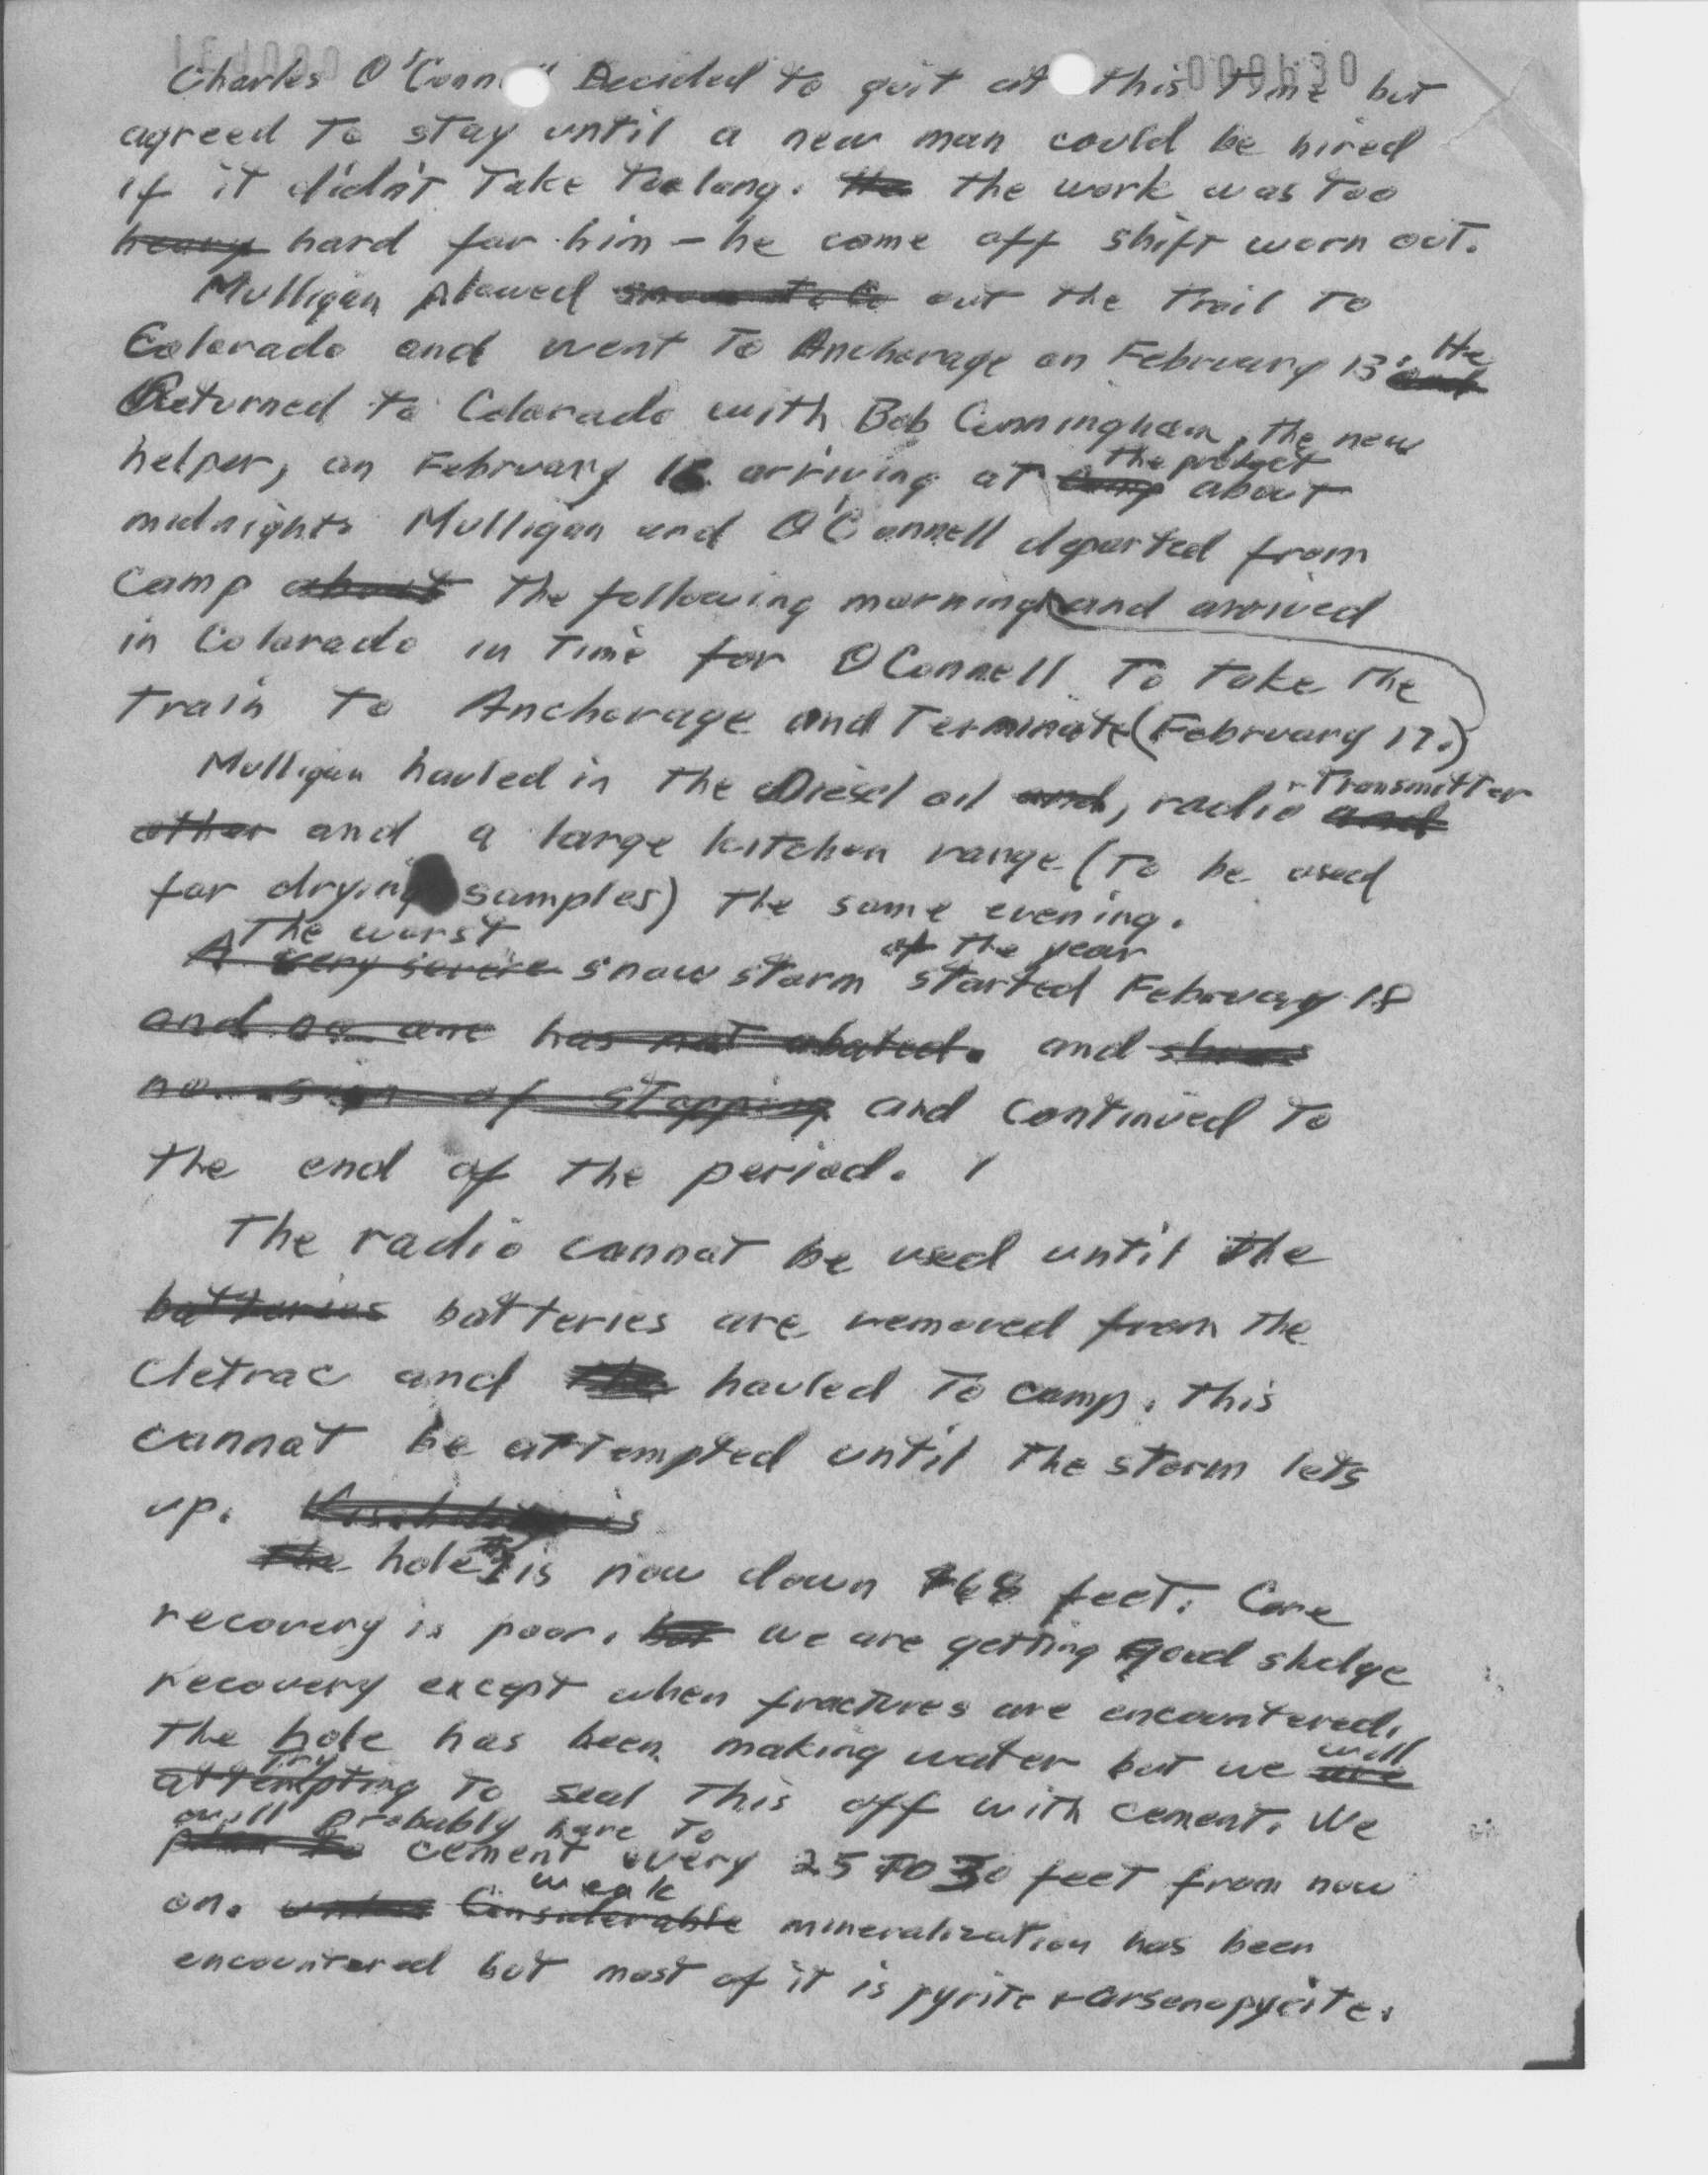 000630
Charles O'Conn  ll Decided to quit at this time but
agreed to stay until a new man could be hired
if it didn't take too long. the the work was too
heavy hard for him — he came off shift worn out.
Mulligan plowed out the trail to
Colorado and went to Anchorage on February 13. He and
Returned to Colorado with Bob Cunningham, the new
helper, on February 16 arriving at camp the project about
midnight. Mulligan and O'Connell departed from
camp about the following morning and arrived
in Colorado in time for O'Connell to take the
train to Anchorage and Terminate (February 17.)
Mulligan hauled in the Diesel oil and, radio-Transmitter and
other and a large kitchen range (to be used
for drying samples) the same evening.
The worst of the year
A very severe snow storm started February 18
and no one has not abated. and shows
no sign of stopping and continued to
the end of the period.
The radio cannot be used until the
batteries batteries are removed from the
Cletrac and the hauled to camp. this
cannot be attempted until the storm lets
up. Visibility is
The hole is now down 168 feet. Core
recovery is poor. but we are getting good sludge
recovery except when fractures are encountered.
The hole has been making water but we are will
attempting try to seal this off with cement. We
will probably have to
plan to cement every 25 to 30 feet from now
on. unless Considerable weak mineralization has been
encountered but most of it is pyrite + arsenopyrite.